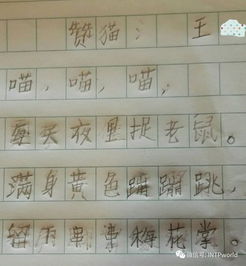 赞猫: 王
喵,喵,喵,
夜里捉老鼠。
满身黄色蹦蹦跳,
留下串串梅花掌。
微信号: INTPworld